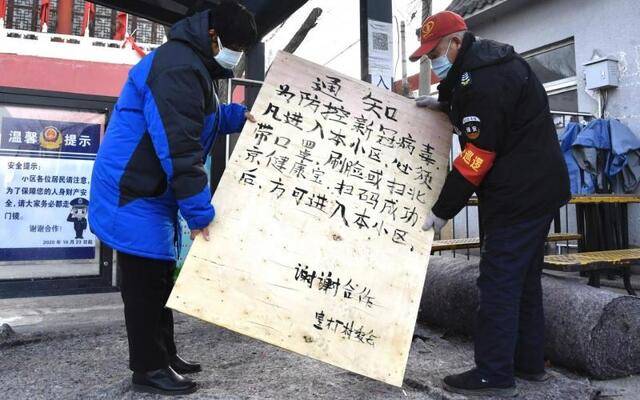 温馨 提示
安全提示:
小区各位居民请注意,
为了保障您的人身财产安
全,请大家务必都走
门镜。
谢谢合作!
通 知
为防控新冠病毒
凡进入本小区,必须
带口罩,刷脸或扫北
京健康宝,扫码成功
后,方可进入本小区,
谢谢合作
村委会
巡逻
入